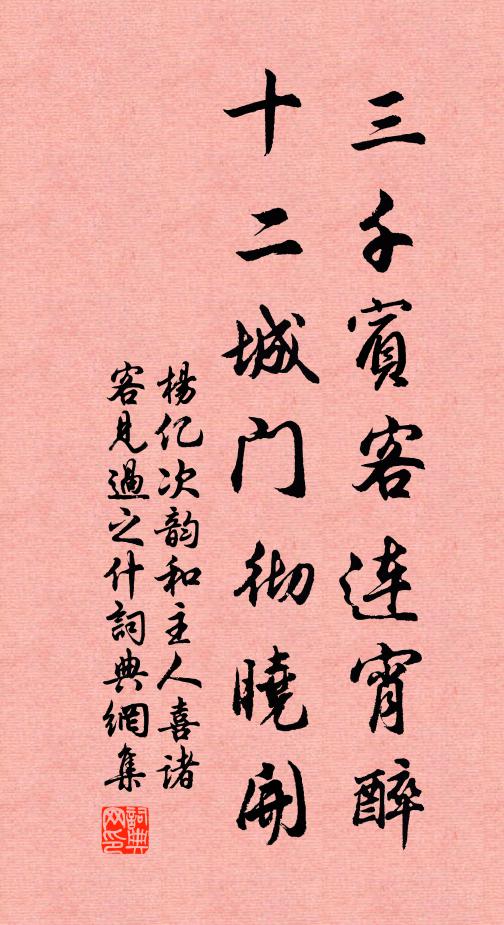 三千賓客連宵醉
十二城门彻曉開
楊亿次韵和主人喜诸
客見過之什詞典網集
詞典
网印